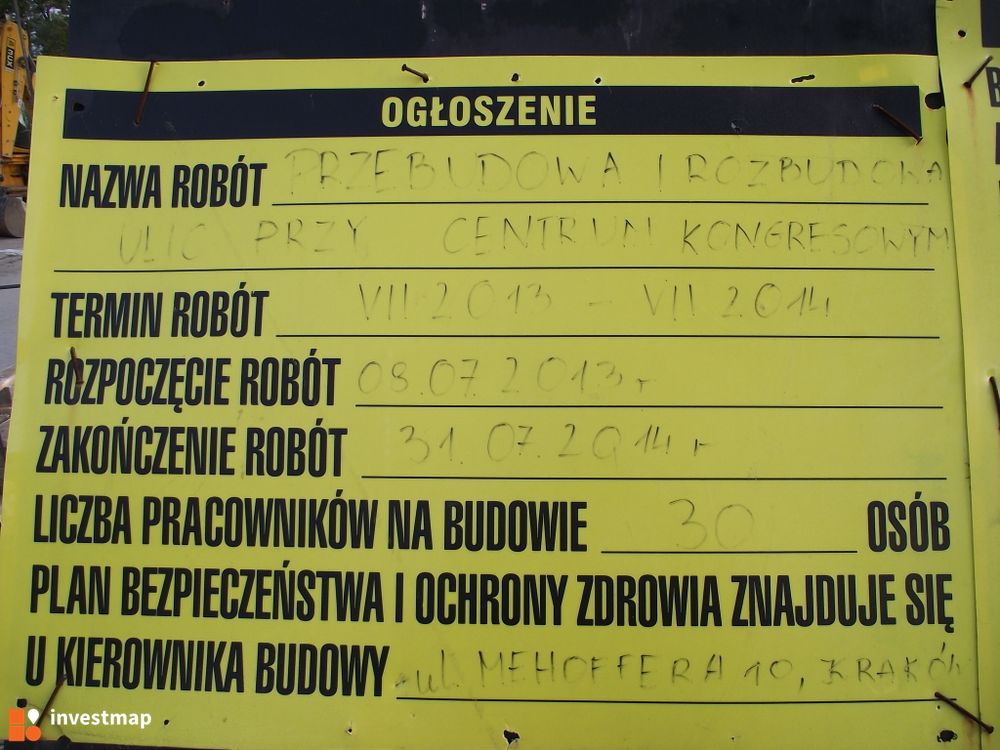 OGŁOSZENIE
NAZWA ROBÓT PRZEBUDOWA I ROZBUDOWA
ULIC PRZY CENTRUM KONGRESOWYM
TERMIN ROBÓT VII 2013 - VII 2014
ROZPOCZĘCIE ROBÓT 08.07.2013 r
ZAKOŃCZENIE ROBÓT 31.07.2014 r
LICZBA PRACOWNIKÓW NA BUDOWIE 30 OSÓB
PLAN BEZPIECZEŃSTWA I OCHRONY ZDROWIA ZNAJDUJE SIĘ
U KIEROWNIKA BUDOWY ul. MEHOFFERA 10, KRAKÓW
investmap